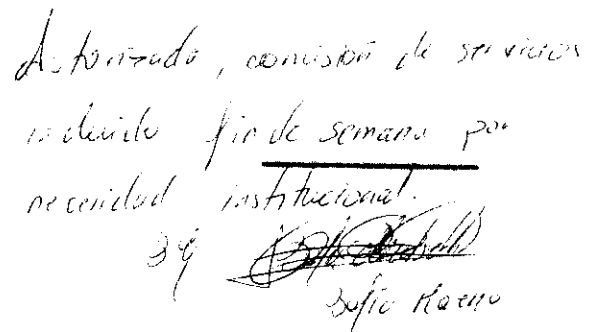 Autorizado, comisión de servicios
incluido fin de semana por
necesidad institucional.